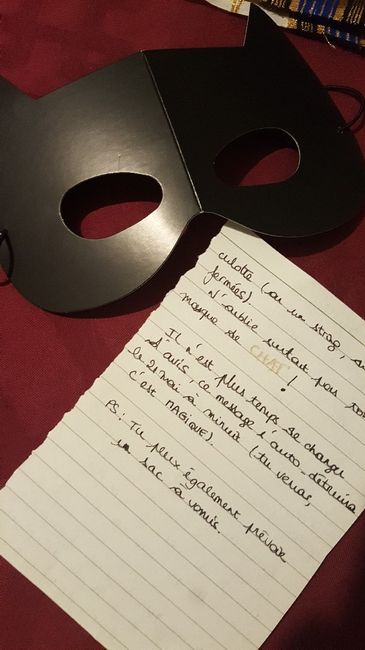 culotte (ou un string, si
fermées).
N'oublie surtout pas ton
masque de CHAT !
Il n'est plus temps de changer
d'avis, ce message s'auto-détruira
le 21 Mai à minuit (tu verras,
c'est MAGIQUE).
PS : Tu peux également prévoir
un sac à vomis.